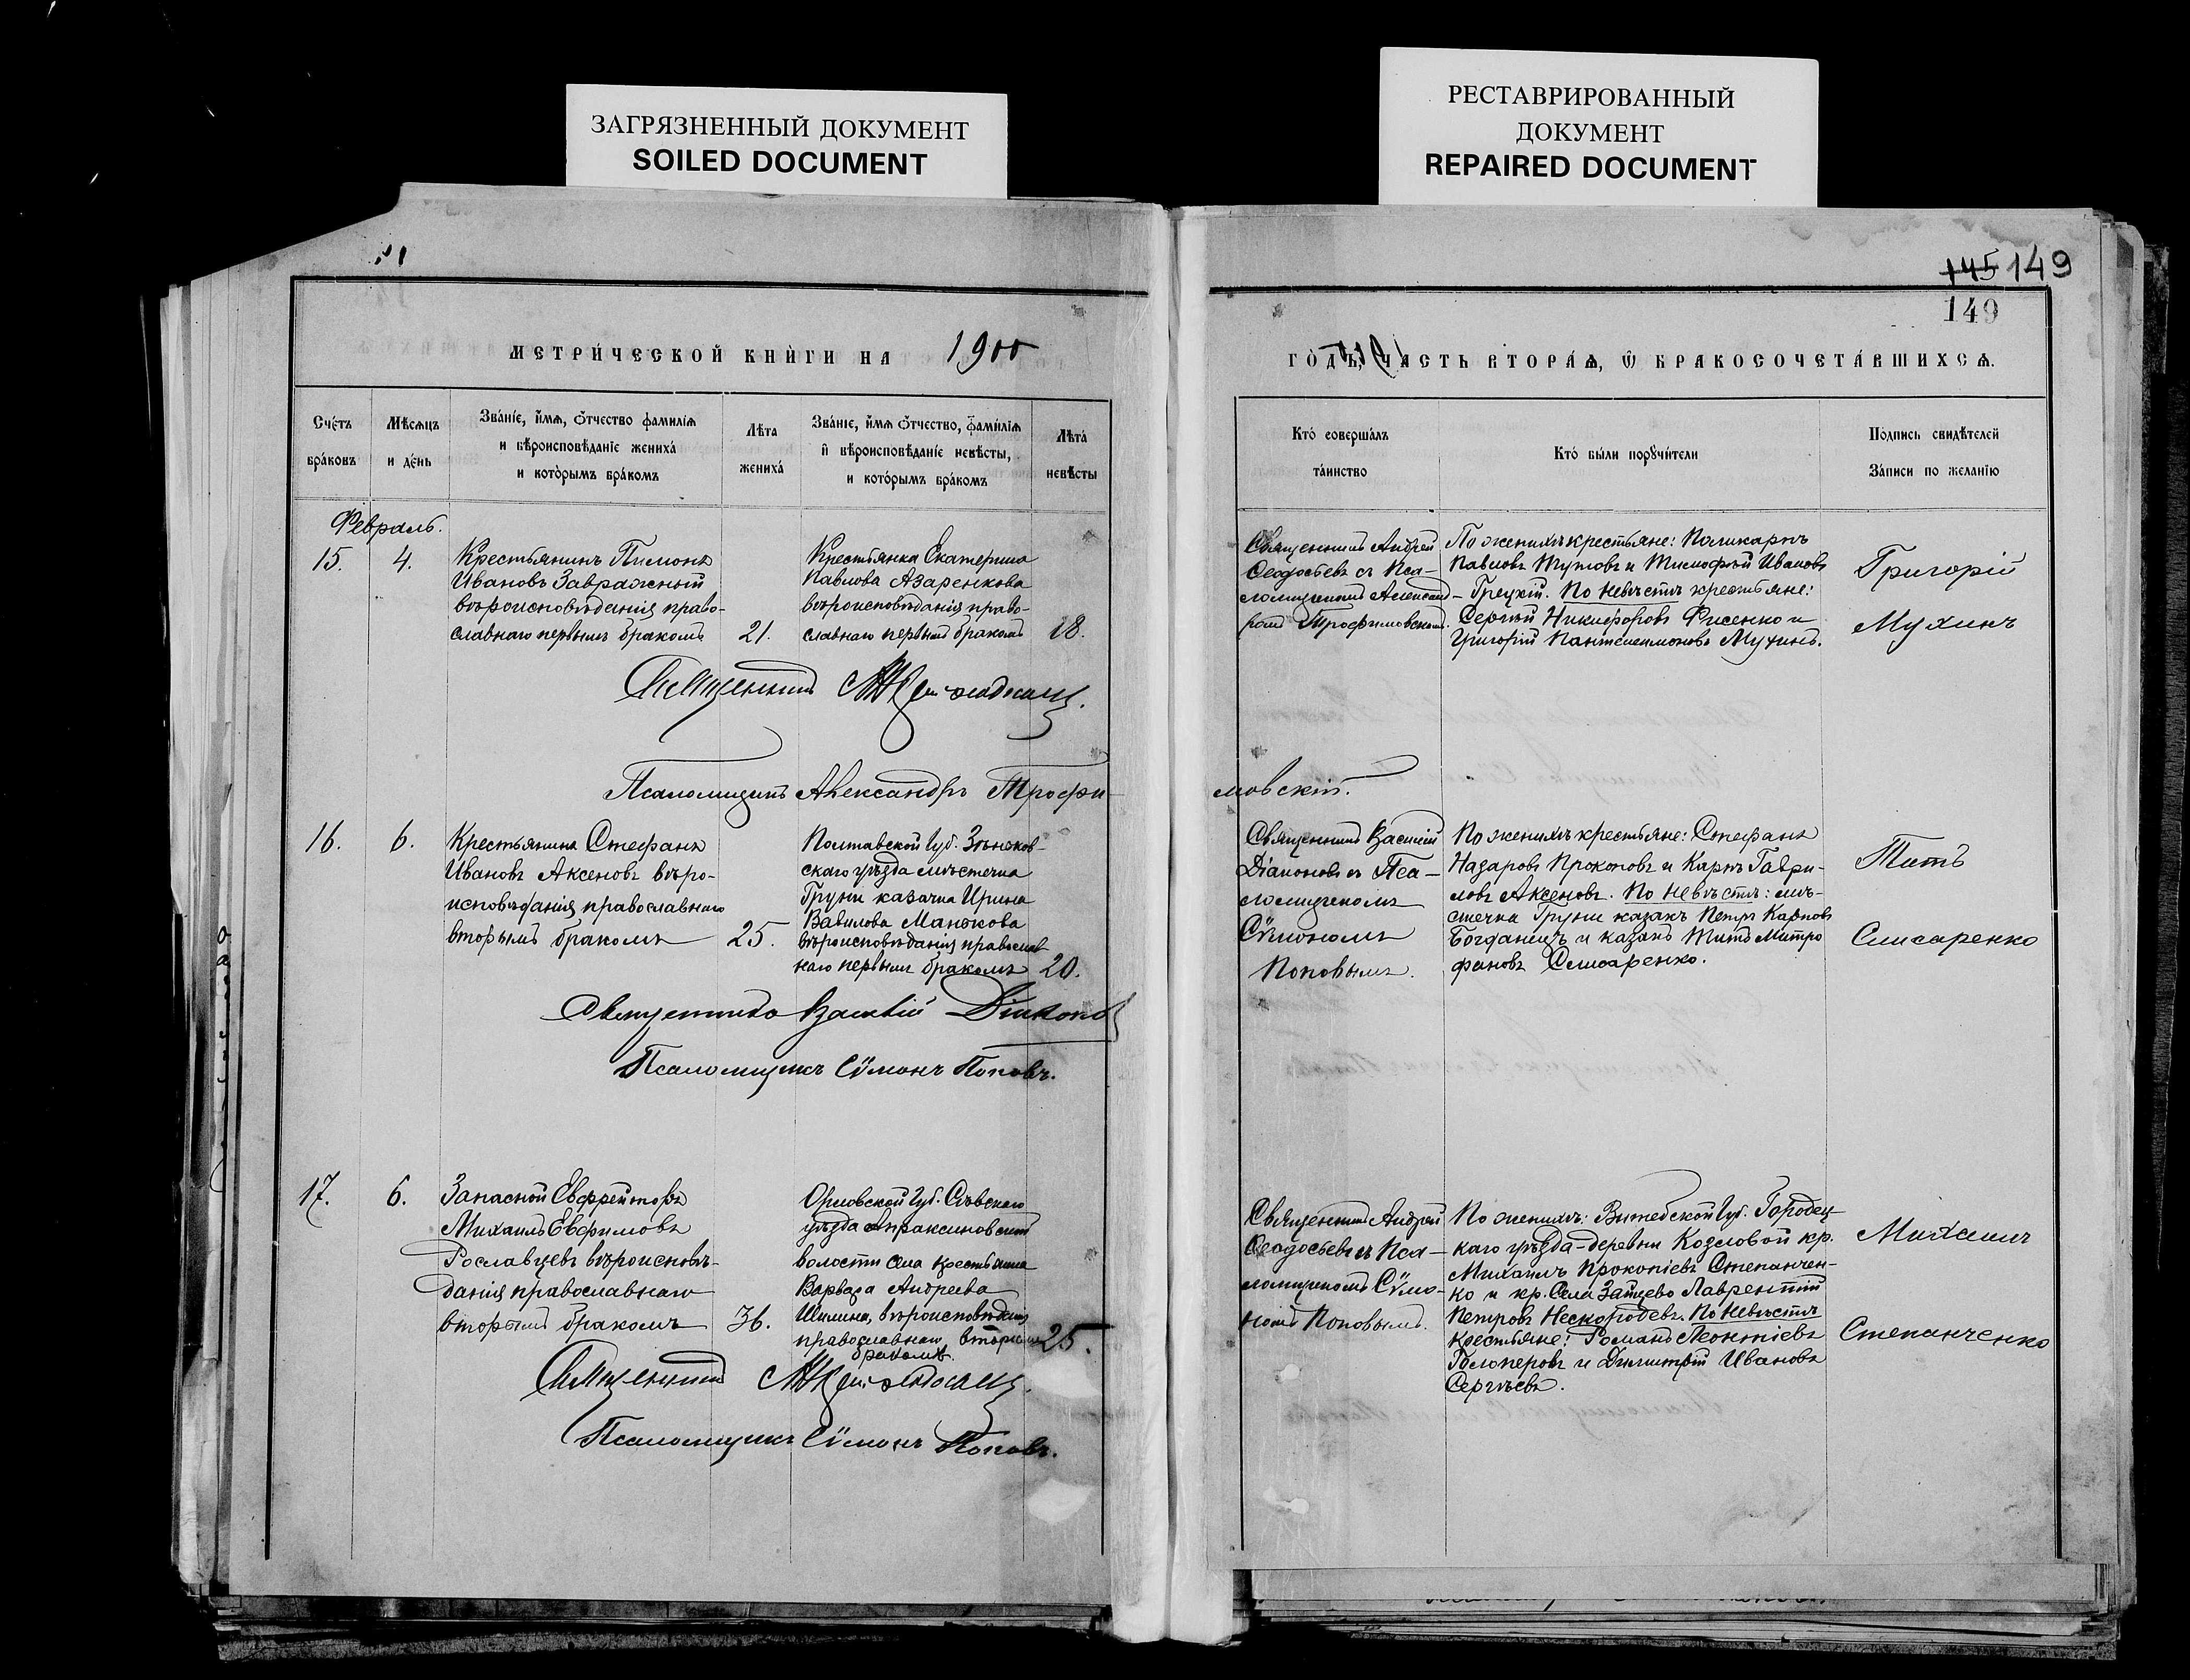 ЗАГРЯЗНЕННЫЙ ДОКУМЕНТ
SOILED DOCUMENT
РЕСТАВРИРОВАННЫЙ
ДОКУМЕНТ
REPAIRED DOCUMENT
145 149
149
МЕТРИ́ЧЕСКОЙ КНИ́ГИ НА 1900
ГО́ДЪ, ЧАСТЬ ВТОРА́Ѧ, Ѿ БРАКОСОЧЕТА́ВШИХСѦ.
Сче́тъ
бра́ковъ
Мѣ́сѧцъ
и де́нь
Зва́нїе, и́мѧ, ѻ́тчество фамилїѧ
и вѣроисповѣ́данїе жениха́
и кото́рымъ бра́комъ
Лѣ́та
жениха́
Зва́нїе, и́мѧ ѻ́тчество, фами́лїѧ
и вѣроисповѣ́данїе невѣ́сты,
и кото́рымъ бра́комъ
Лѣ́та
невѣ́сты
Кто́ соверша́лъ
та́инство
Кто́ бы́ли порꙋчи́тели
По́дпись свидѣ́телей
За́писи по жела́нїю
Февраль.
15.
4.
Крестьянинъ Пимонъ
Ивановъ Завражный
вѣроисповѣданія право-
славнаго первымъ бракомъ
21.
Крестьянка Екатерина
Павлова Азаренкова
вѣроисповѣданія право-
славнаго первымъ бракомъ
18.
Священникъ Андрей
Ѳеодосьевъ съ Пса-
ломщикомъ Александ-
ромъ Трофимовскимъ.
По женихѣ крестьяне: Поликарпъ
Павловъ Тутовъ и Тимофѣй Ивановъ
Грецкій. По невѣстѣ крестьяне:
Сергѣй Никифоровъ Фисенко и
Григорій Пантелеимоновъ Мухинъ.
Григорій
Мухинъ
Священникъ
Псаломщикъ Александръ Трофи-
мовскій.
16.
6.
Крестьянинъ Стефанъ
Ивановъ Аксеновъ вѣро-
исповѣданія православнаго
вторымъ бракомъ
25.
Полтавской губ. Зѣньков-
скаго уѣзда мѣстечка
Груни казачка Ирина
Вавилова Манькова
вѣроисповѣданія православ
наго первымъ бракомъ
20.
Священникъ Василій
Діаконовъ съ Пса-
ломщикомъ
Сѷмономъ
Поповымъ.
По женихѣ крестьяне: Стефанъ
Назаровъ Прокоповъ и Карпъ Гаври-
ловъ Аксеновъ. По невѣстѣ: мѣ-
стечка Груни казакъ Петръ Карповъ
Богданецъ и казакъ Титъ Митро
фановъ Слисаренко.
Титъ
Слисаренко
Священникъ Василій Діаконовъ
Псаломщикъ Сѷмонъ Поповъ.
17.
6.
Запасной Ефрейторъ
Михаилъ Евфимовъ
Рославцевъ вѣроисповѣ-
данія православнаго
вторымъ бракомъ
36.
Орловской губ. Сѣвскаго
уѣзда Апраксиновской
волости села крестьянка
Варвара Андреева
Шилина, вѣроисповѣданія
православнаго, вторымъ
бракомъ.
25.
Священникъ Андрей
Ѳеодосьевъ съ Пса-
ломщикомъ Сѷмо-
номъ Поповымъ.
По женихѣ: Витебской губ. Городец-
каго уѣзда - деревни Козловой кр.
Михаилъ Прокопіевъ Степанчен-
ко и кр. Села Зайцево Лаврентій
Петровъ Нескородевъ. По Невѣстѣ
крестьяне: Романъ Леонтіевъ
Голоперовъ и Димитрій Ивановъ
Сергѣевъ.
Михаилъ
Степанченко
Священникъ
Псаломщикъ Сѷмонъ Поповъ.